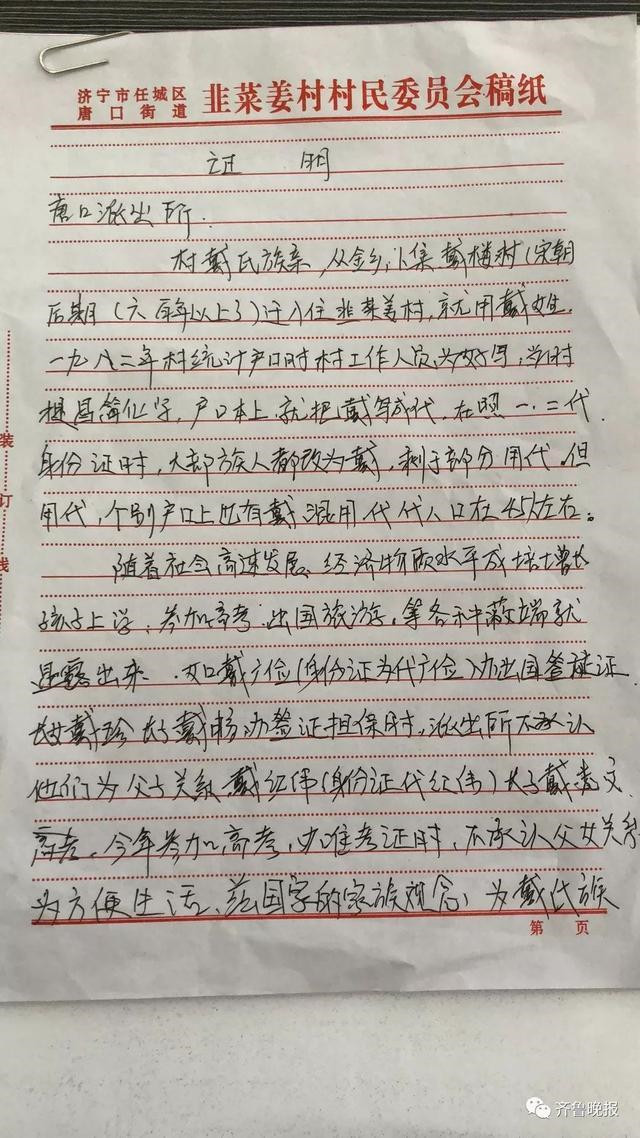 济宁市任城区
唐口街道
韭菜姜村村民委员会稿纸
证 明
唐口派出所.
村戴氏族亲,从金乡,卜集,戴楼村(宋朝
后期(六百年以上了)迁入住韭菜姜村,就用戴姓.
一九八二年村统计户口时村工作人员为好写,当时
提昌简化字,户口本上就把戴写成代,在照一.二代.
身份证时,大部族人都改为戴,剩于部分用代.但
用代,个别户口上也有戴.混用.代代人口在45人左右。
随着社会高速发展、经济物质水平成倍增长
孩子上学,参加高考.出国旅游,等各种蔽端就
显露出来.如戴广俭(身份证为代广俭)办出国签证证
长女戴珍长子戴畅,办签证担保时,派出所不承认
他们为父子关系,戴红伟(身份证代红伟)长子戴 文
高考,今年参加高考,办准考证时,不承认父女关系
为方便生活、 国家的家族观念,为戴氏族
装
订
线
第 页
齐鲁晚报